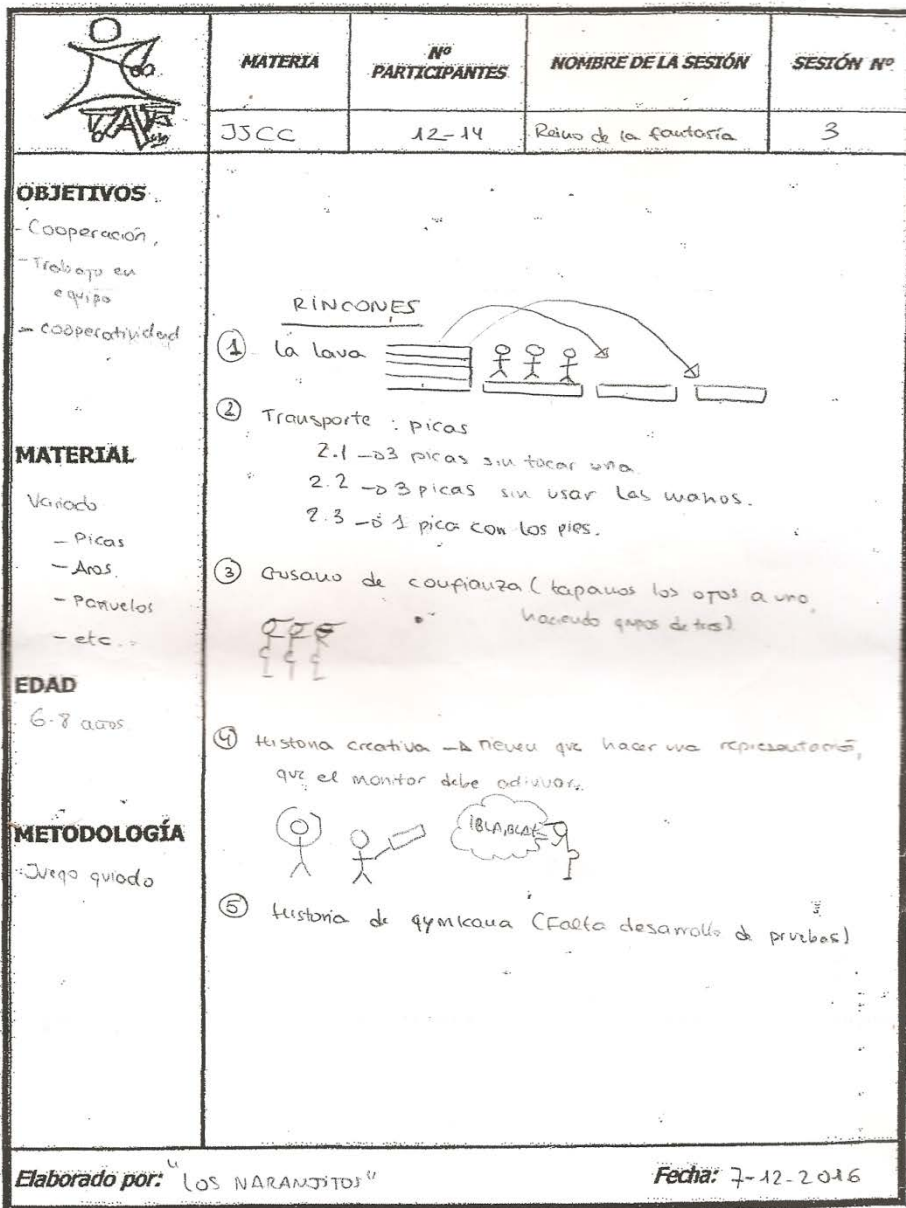 MATERIA
Nº PARTICIPANTES
NOMBRE DE LA SESIÓN
SESIÓN Nº
JSCC
12-14
Reino de la fantasía
3
OBJETIVOS
- Cooperación,
- Trabajo en
equipo
- Cooperatividad
MATERIAL
Variado
- Picas
- Aros
- Pañuelos
- etc...
EDAD
6-8 años
METODOLOGÍA
Juego guiado
RINCONES
1 La lava
2 Transporte : picas
2.1 → 3 picas sin tocar una.
2.2 → 3 picas sin usar las manos.
2.3 → 1 pica con los pies.
3 Gusano de confianza (tapamos los ojos a uno,
haciendo grupos de tres)
4 Historia creativa → tienen que hacer una representació,
que el monitor debe adivinar.
¡BLA, BLA!
5 Historia de gymkana (Falta desarrollo de pruebas)
Elaborado por: "LOS NARANJITOS"
Fecha: 7-12-2016